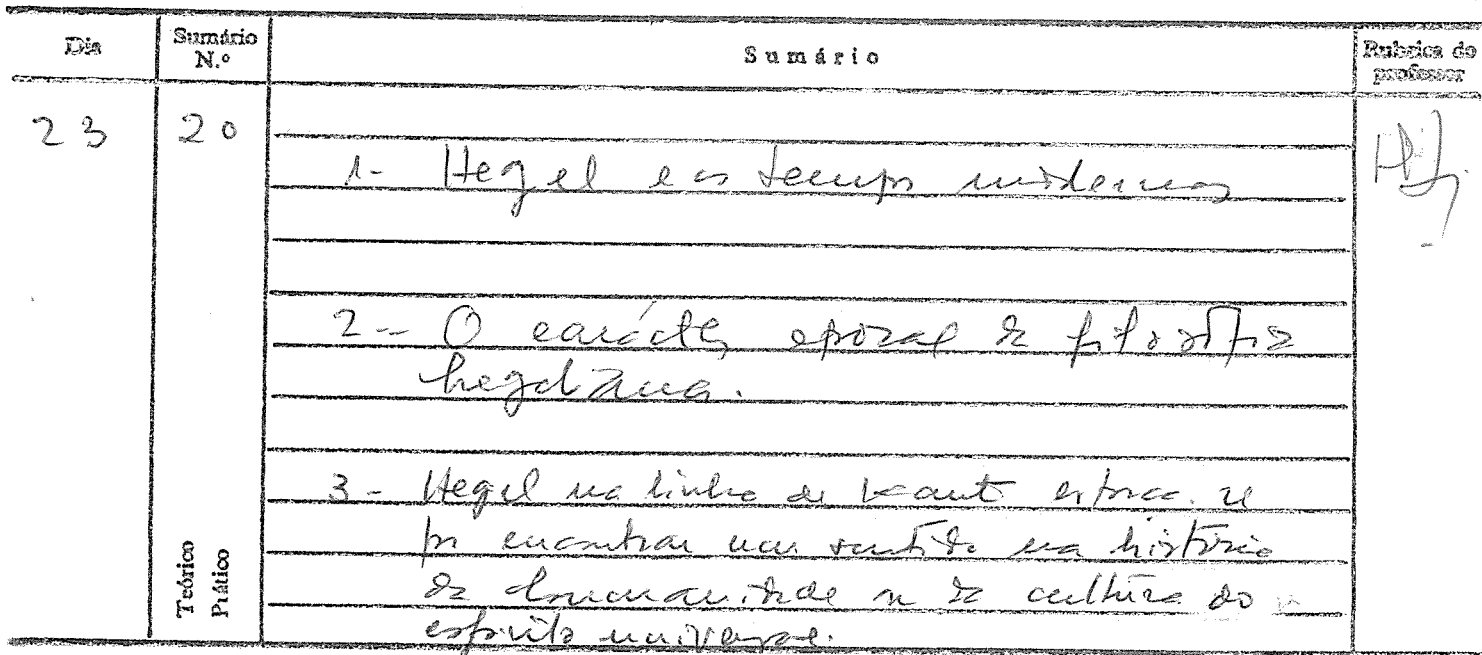 Dia Sumário N.º Sumário Rubrica do professor
23 20
1- Hegel e os tempos modernos
2- O carácter epocal da filosofia
hegeliana.
3- Hegel na linha de Kant esforça-se
por encontrar um sentido na história
da humanidade ou da cultura do
espírito universal.
Teórico
Prático